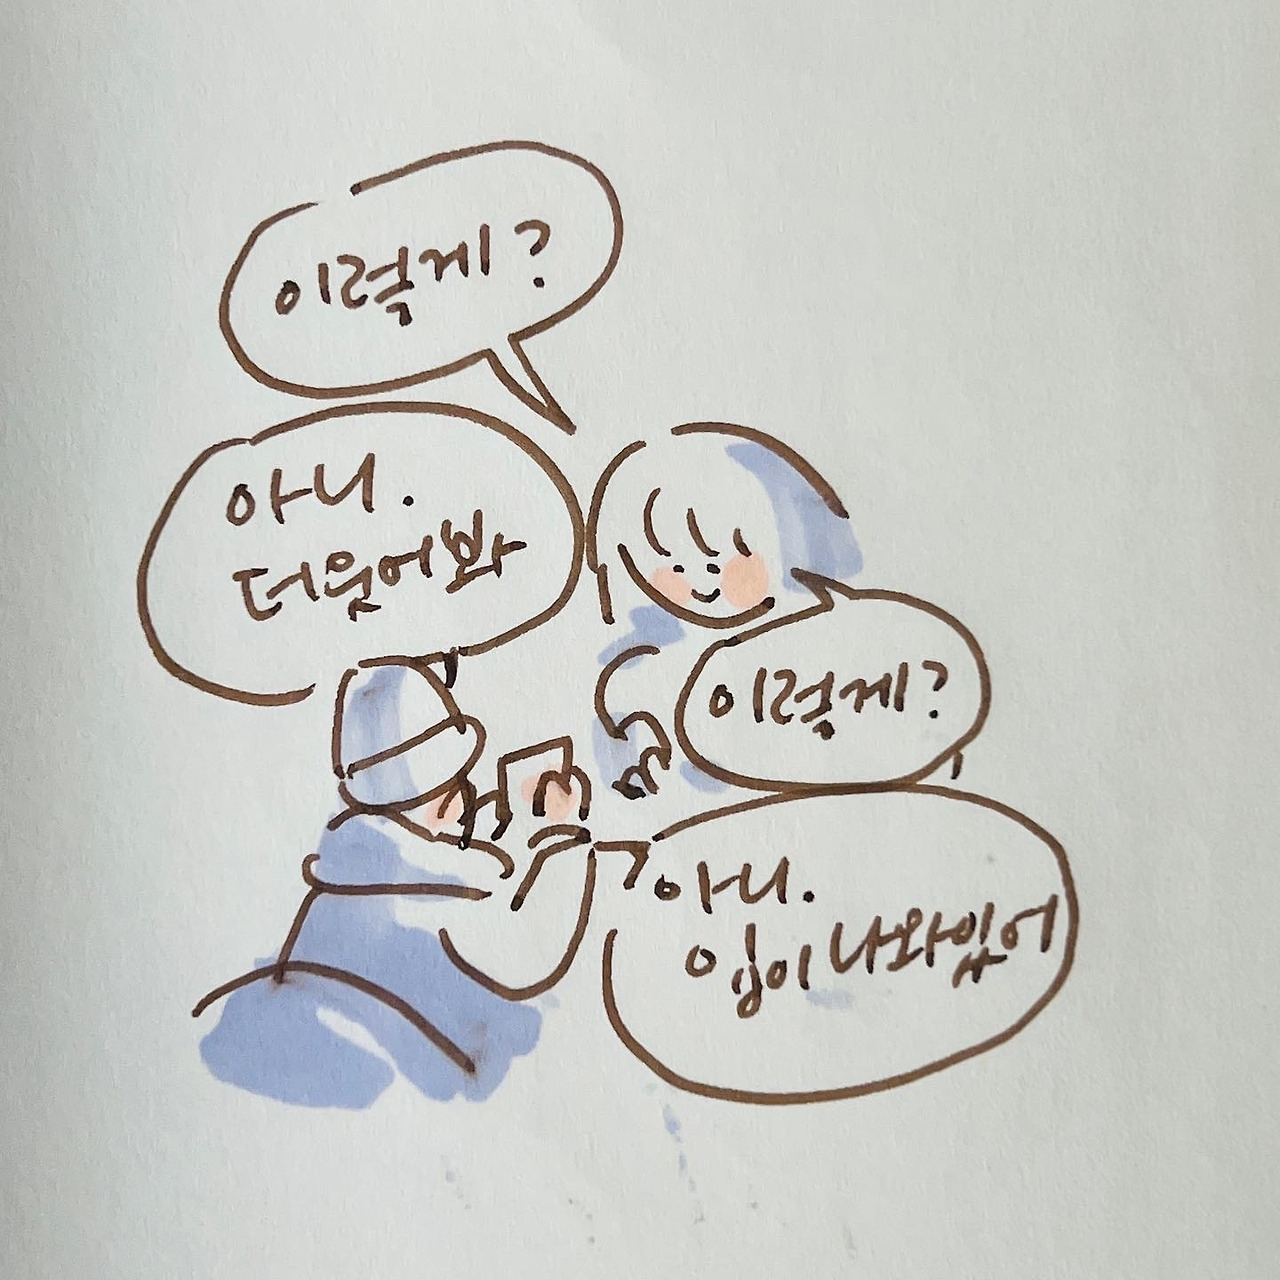 이렇게?
아니.
더 웃어봐
이렇게?
아니.
입이 나와있어